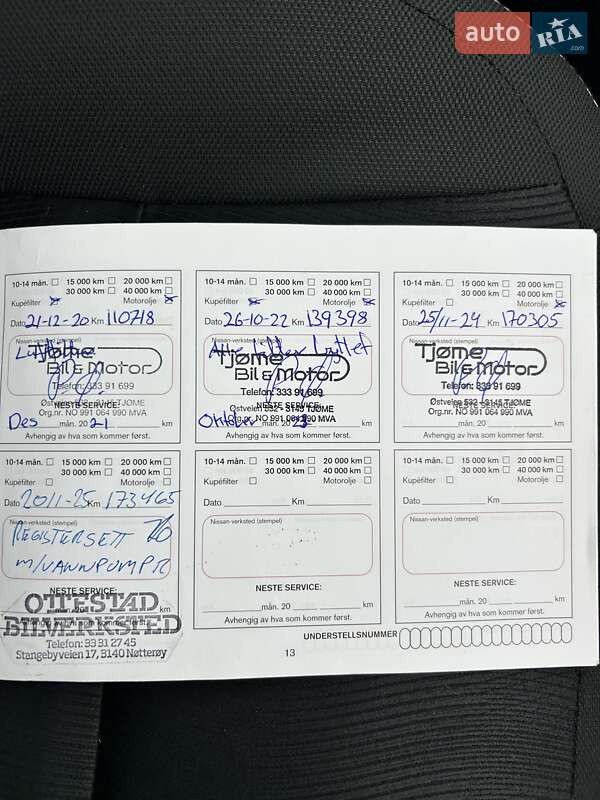 auto RIA .com
10-14 mån. 15 000 km 20 000 km
30 000 km 40 000 km
Kupéfilter Motorolje
Dato 21-12-20 Km 110718
Nissan-verksted (stempel)
Tjøme
Bil & Motor
Telefon: 333 91 699
TJØME
Org.nr. NO 991 064 990 MVA
NESTE SERVICE:
Des mån. 20 21 km
Avhengig av hva som kommer først.
10-14 mån. 15 000 km 20 000 km
30 000 km 40 000 km
Kupéfilter Motorolje
Dato 26-10-22 Km 139398
Alle filter byttet
Tjøme
Bil & Motor
Telefon: 333 91 699
Østveien 532 - 3145 TJØME
Org.nr. NO 991 064 990 MVA
Oktober mån. 20 km
Avhengig av hva som kommer først.
10-14 mån. 15 000 km 20 000 km
30 000 km 40 000 km
Kupéfilter Motorolje
Dato 25/11-24 Km 170305
Nissan-verksted (stempel)
Tjøme
Bil & Motor
Telefon: 333 91 699
Østveien 532 - 3145 TJØME
NESTE SERVICE:
Org.nr. NO 991 064 990 MVA
mån. 20 km
Avhengig av hva som kommer først.
10-14 mån. 15 000 km 20 000 km
30 000 km 40 000 km
Kupéfilter Motorolje
Dato 2011-25 Km 173465
Nissan-verksted (stempel)
REGISTERSETT
m/VANNPUMPE
NESTE SERVICE:
OTTESTAD
mån. 20 km
BILVERKSTED
Avhengig av hva som kommer først.
Telefon: 33 31 27 45
Stangebyveien 17, 3140 Nøtterøy
10-14 mån. 15 000 km 20 000 km
30 000 km 40 000 km
Kupéfilter Motorolje
Dato Km
Nissan-verksted (stempel)
NESTE SERVICE:
mån. 20 km
Avhengig av hva som kommer først.
10-14 mån. 15 000 km 20 000 km
30 000 km 40 000 km
Kupéfilter Motorolje
Dato Km
Nissan-verksted (stempel)
NESTE SERVICE:
mån. 20 km
Avhengig av hva som kommer først.
UNDERSTELLSNUMMER
13